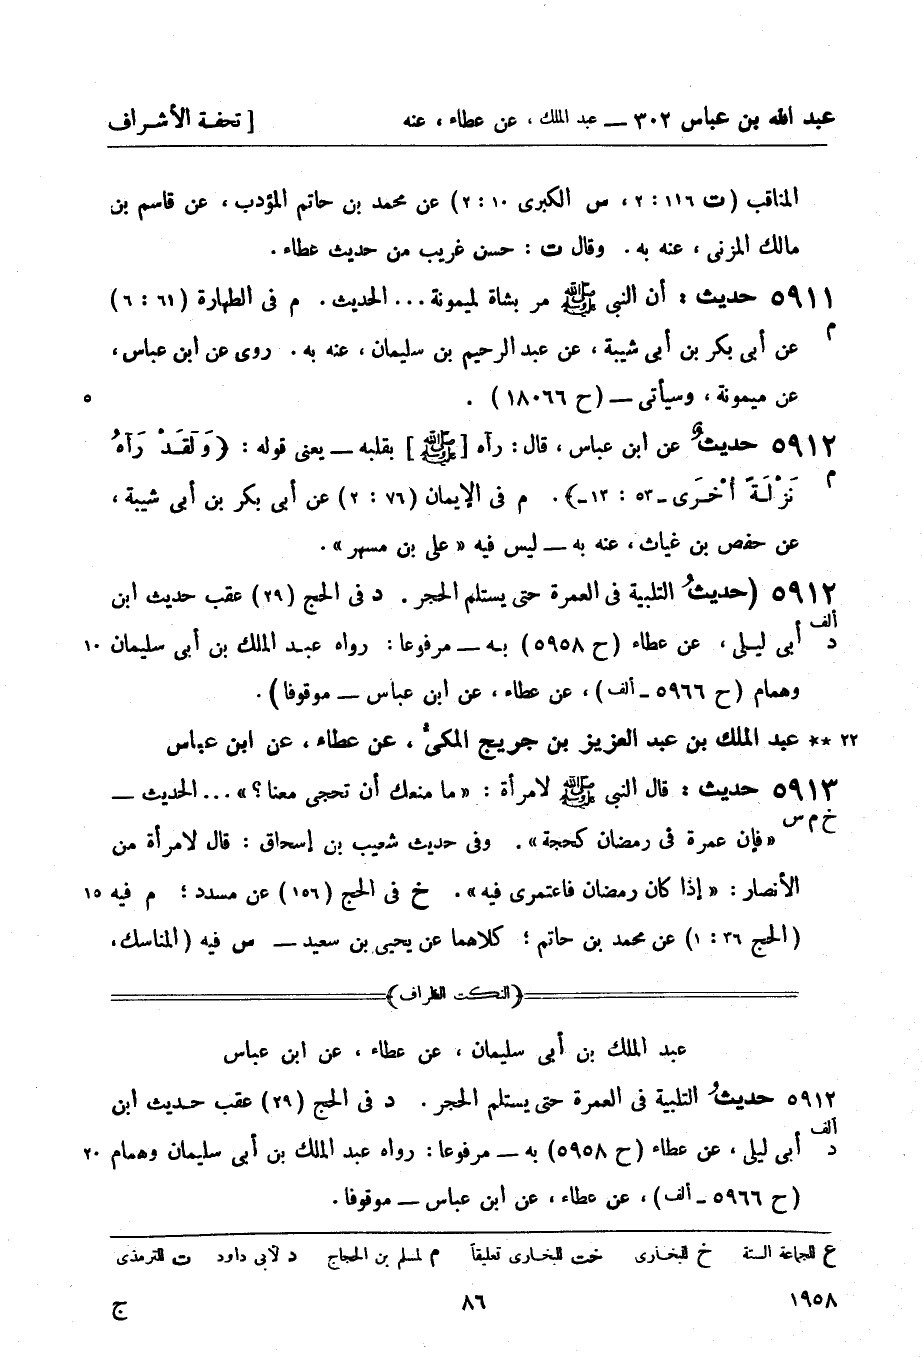 عبد الله بن عباس ٣٠٢ ـــ عبد الملك ، عن عطاء ، عنه [ تحفة الأشراف
المناقب (ت ١١٦ : ٢ ، س الكبرى ١٠ : ٢) عن محمد بن حاتم المؤدب ، عن قاسم بن
مالك المزنى ، عنه به . وقال ت : حسن غريب من حديث عطاء .
٥٩١١ حديث : أن النبي ﷺ مر بشاة لميمونة ... الحديث . م فى الطهارة (٦١ : ٦)
م عن أبى بكر بن أبى شيبة ، عن عبد الرحيم بن سليمان ، عنه به . روى عن ابن عباس ،
عن ميمونة ، وسيأتى ـــ (ح ١٨٠٦٦) . ٥
٥٩١٢ حديث عن ابن عباس ، قال : رآه [ﷺ] بقلبه ـــ يعنى قوله : ﴿ وَلَقَدْ رَآهُ
م نَزْلَةً أُخْرَى ـ ٥٣ : ١٣ ـ﴾ . م فى الإيمان (٧٦ : ٢) عن أبى بكر بن أبى شيبة ،
عن حفص بن غياث ، عنه به ـــ ليس فيه « على بن مسهر » .
٥٩١٢ (حديثُ التلبية فى العمرة حتى يستلم الحجر . د فى الحج (٢٩) عقب حديث ابن
ألف
د أبى ليلى ، عن عطاء (ح ٥٩٥٨) به ـــ مرفوعا : رواه عبد الملك بن أبى سليمان ١٠
وهمام (ح ٥٩٦٦ ـ ألف) ، عن عطاء ، عن ابن عباس ـــ موقوفا) .
٢٢ ** عبد الملك بن عبد العزيز بن جريج المكى ، عن عطاء ، عن ابن عباس
٥٩١٣ حديث : قال النبي ﷺ لامرأة : « ما منعك أن تحجى معنا ؟ » ... الحديث ـــ
خ م س « فإن عمرة فى رمضان كحجة » . وفى حديث شعيب بن إسحاق : قال لامرأة من
الأنصار : « إذا كان رمضان فاعتمرى فيه » . خ فى الحج (١٥٦) عن مسدد ؛ م فيه ١٥
(الحج ٣٦ : ١) عن محمد بن حاتم ؛ كلاهما عن يحيى بن سعيد ـــ س فيه (المناسك ،
(النكت الظراف)
عبد الملك بن أبى سليمان ، عن عطاء ، عن ابن عباس
٥٩١٢ حديثُ التلبية فى العمرة حتى يستلم الحجر . د فى الحج (٢٩) عقب حديث ابن
ألف
د أبى ليلى ، عن عطاء (ح ٥٩٥٨) به ـــ مرفوعا : رواه عبد الملك بن أبى سليمان وهمام ٢٠
(ح ٥٩٦٦ ـ ألف) ، عن عطاء ، عن ابن عباس ـــ موقوفا .
ع للجماعة الستة خ للبخارى خت للبخارى تعليقاً م لمسلم بن الحجاج د لأبى داود ت للترمذى
١٩٥٨ ٨٦ ج